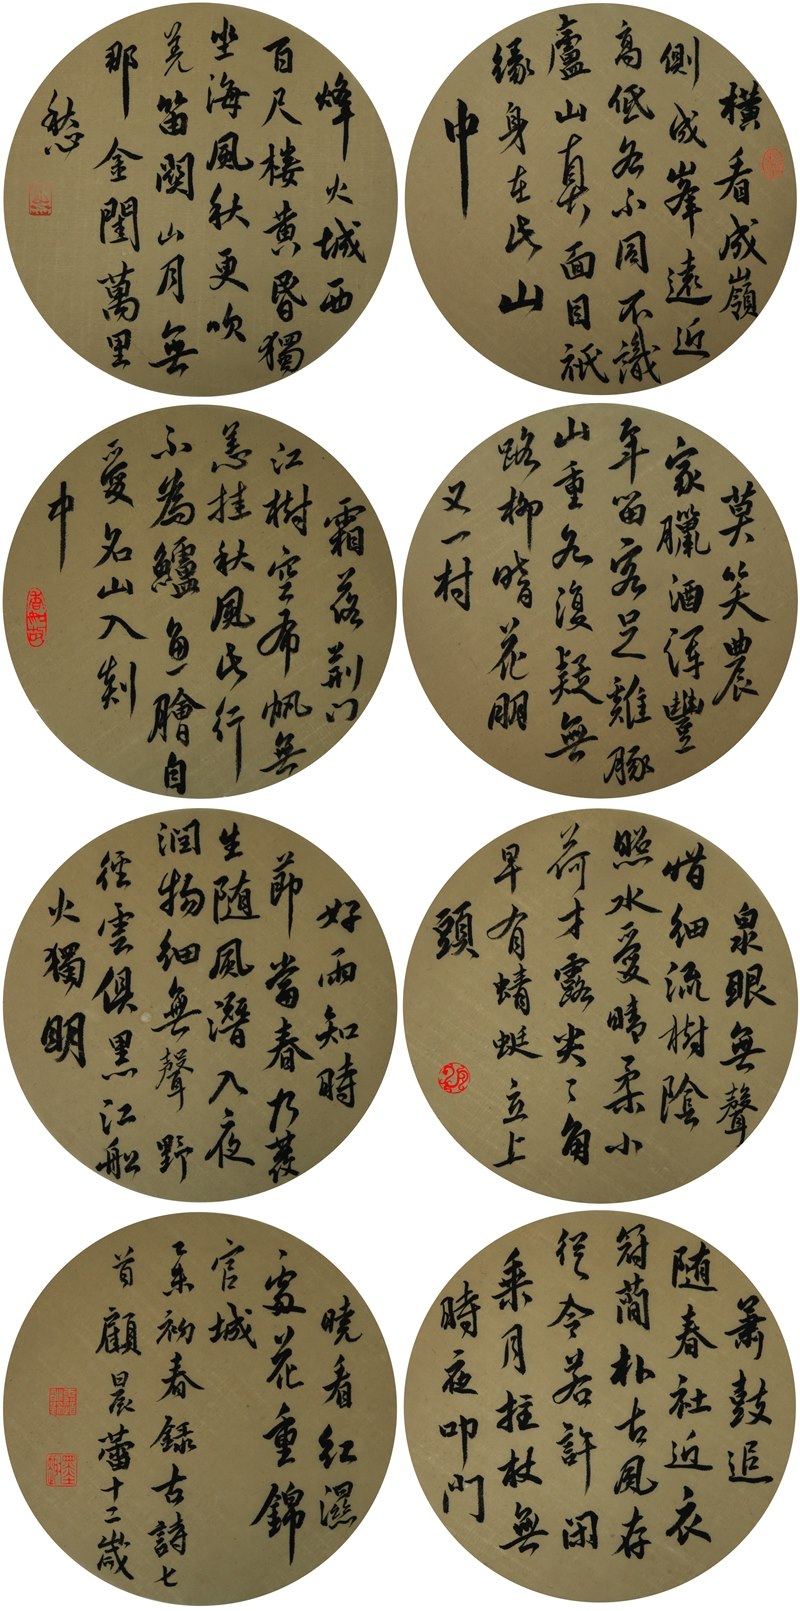 橫看成嶺
側成峯遠近
高低各不同不識
廬山真面目祇
緣身在此山
中
莫笑農
家臘酒渾豐
年留客足雞豚
山重水復疑無
路柳暗花明
又一村
泉眼無聲
惜細流樹陰
照水愛晴柔小
荷才露尖々角
早有蜻蜓立上
頭
簫鼓追
随春社近衣
冠簡朴古風存
從今若許閑
乘月拄杖無
時夜叩門
烽火城西
百尺楼黄昏獨
坐海風秋更吹
羌笛關山月無
那金閨萬里
愁
霜落荊门
江樹空布帆無
恙挂秋風此行
不為鱸魚膾自
愛名山入剡
中
好雨知時
節當春乃發
生随風潛入夜
潤物細無聲野
徑雲俱黑江船
火獨明
曉看紅濕
處花重錦
官城
乙未初春録古詩七
首顧晨蕾十二歲